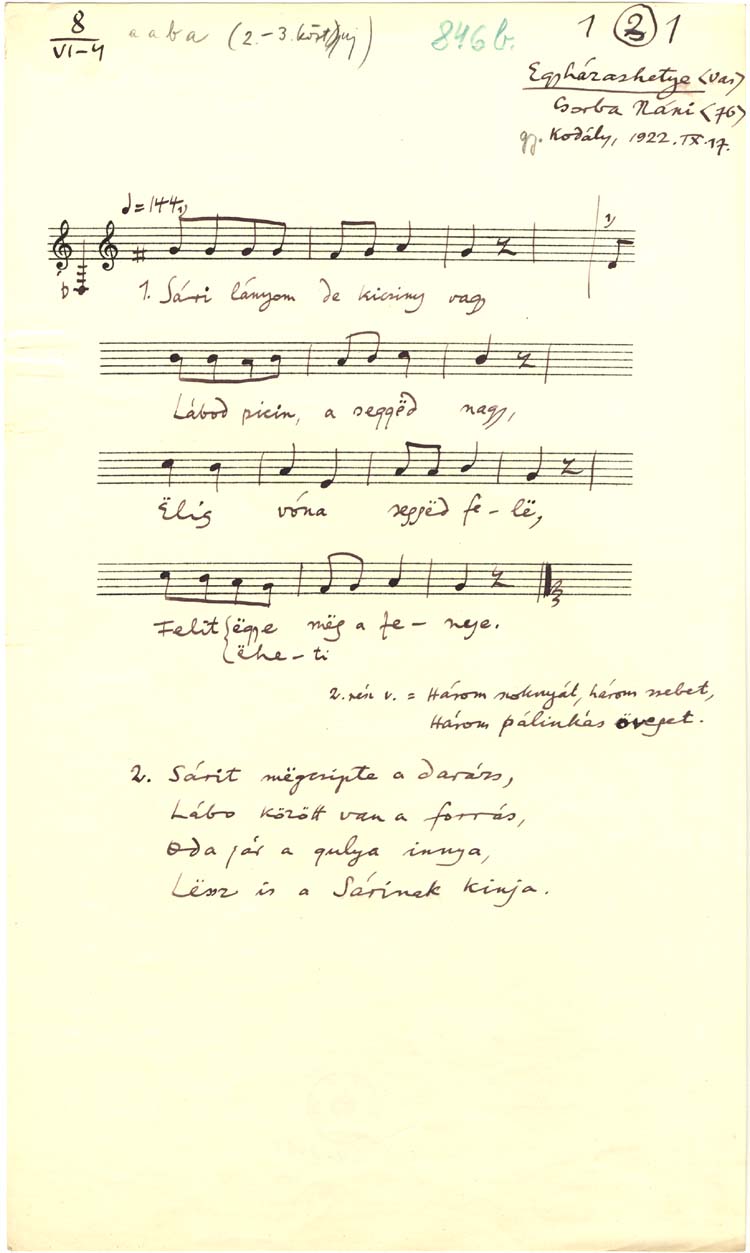 8
VI-4
a a b a (2.-3. közt
846 b.
1 2 1
Egyházashetye <Vas>
Csorba Náni <76>
gy. Kodály, 1922. IX. 17.
=144
1)
1)
1. Sári lányom de kicsiny vagy
Lábod picin, a seggëd nagy,
Ëlig vóna seggëd fe-lë,
Felit { ëgye mëg a fe- neje.
{ ëhe-ti
2. rész v. = Három szoknyát, három
Három pálinkás öveget.
2. Sárit mëgcsipte a darázs,
Lábo között van a forrás,
Oda jár a gulya innya,
Lëssz is a Sárinak kinja.